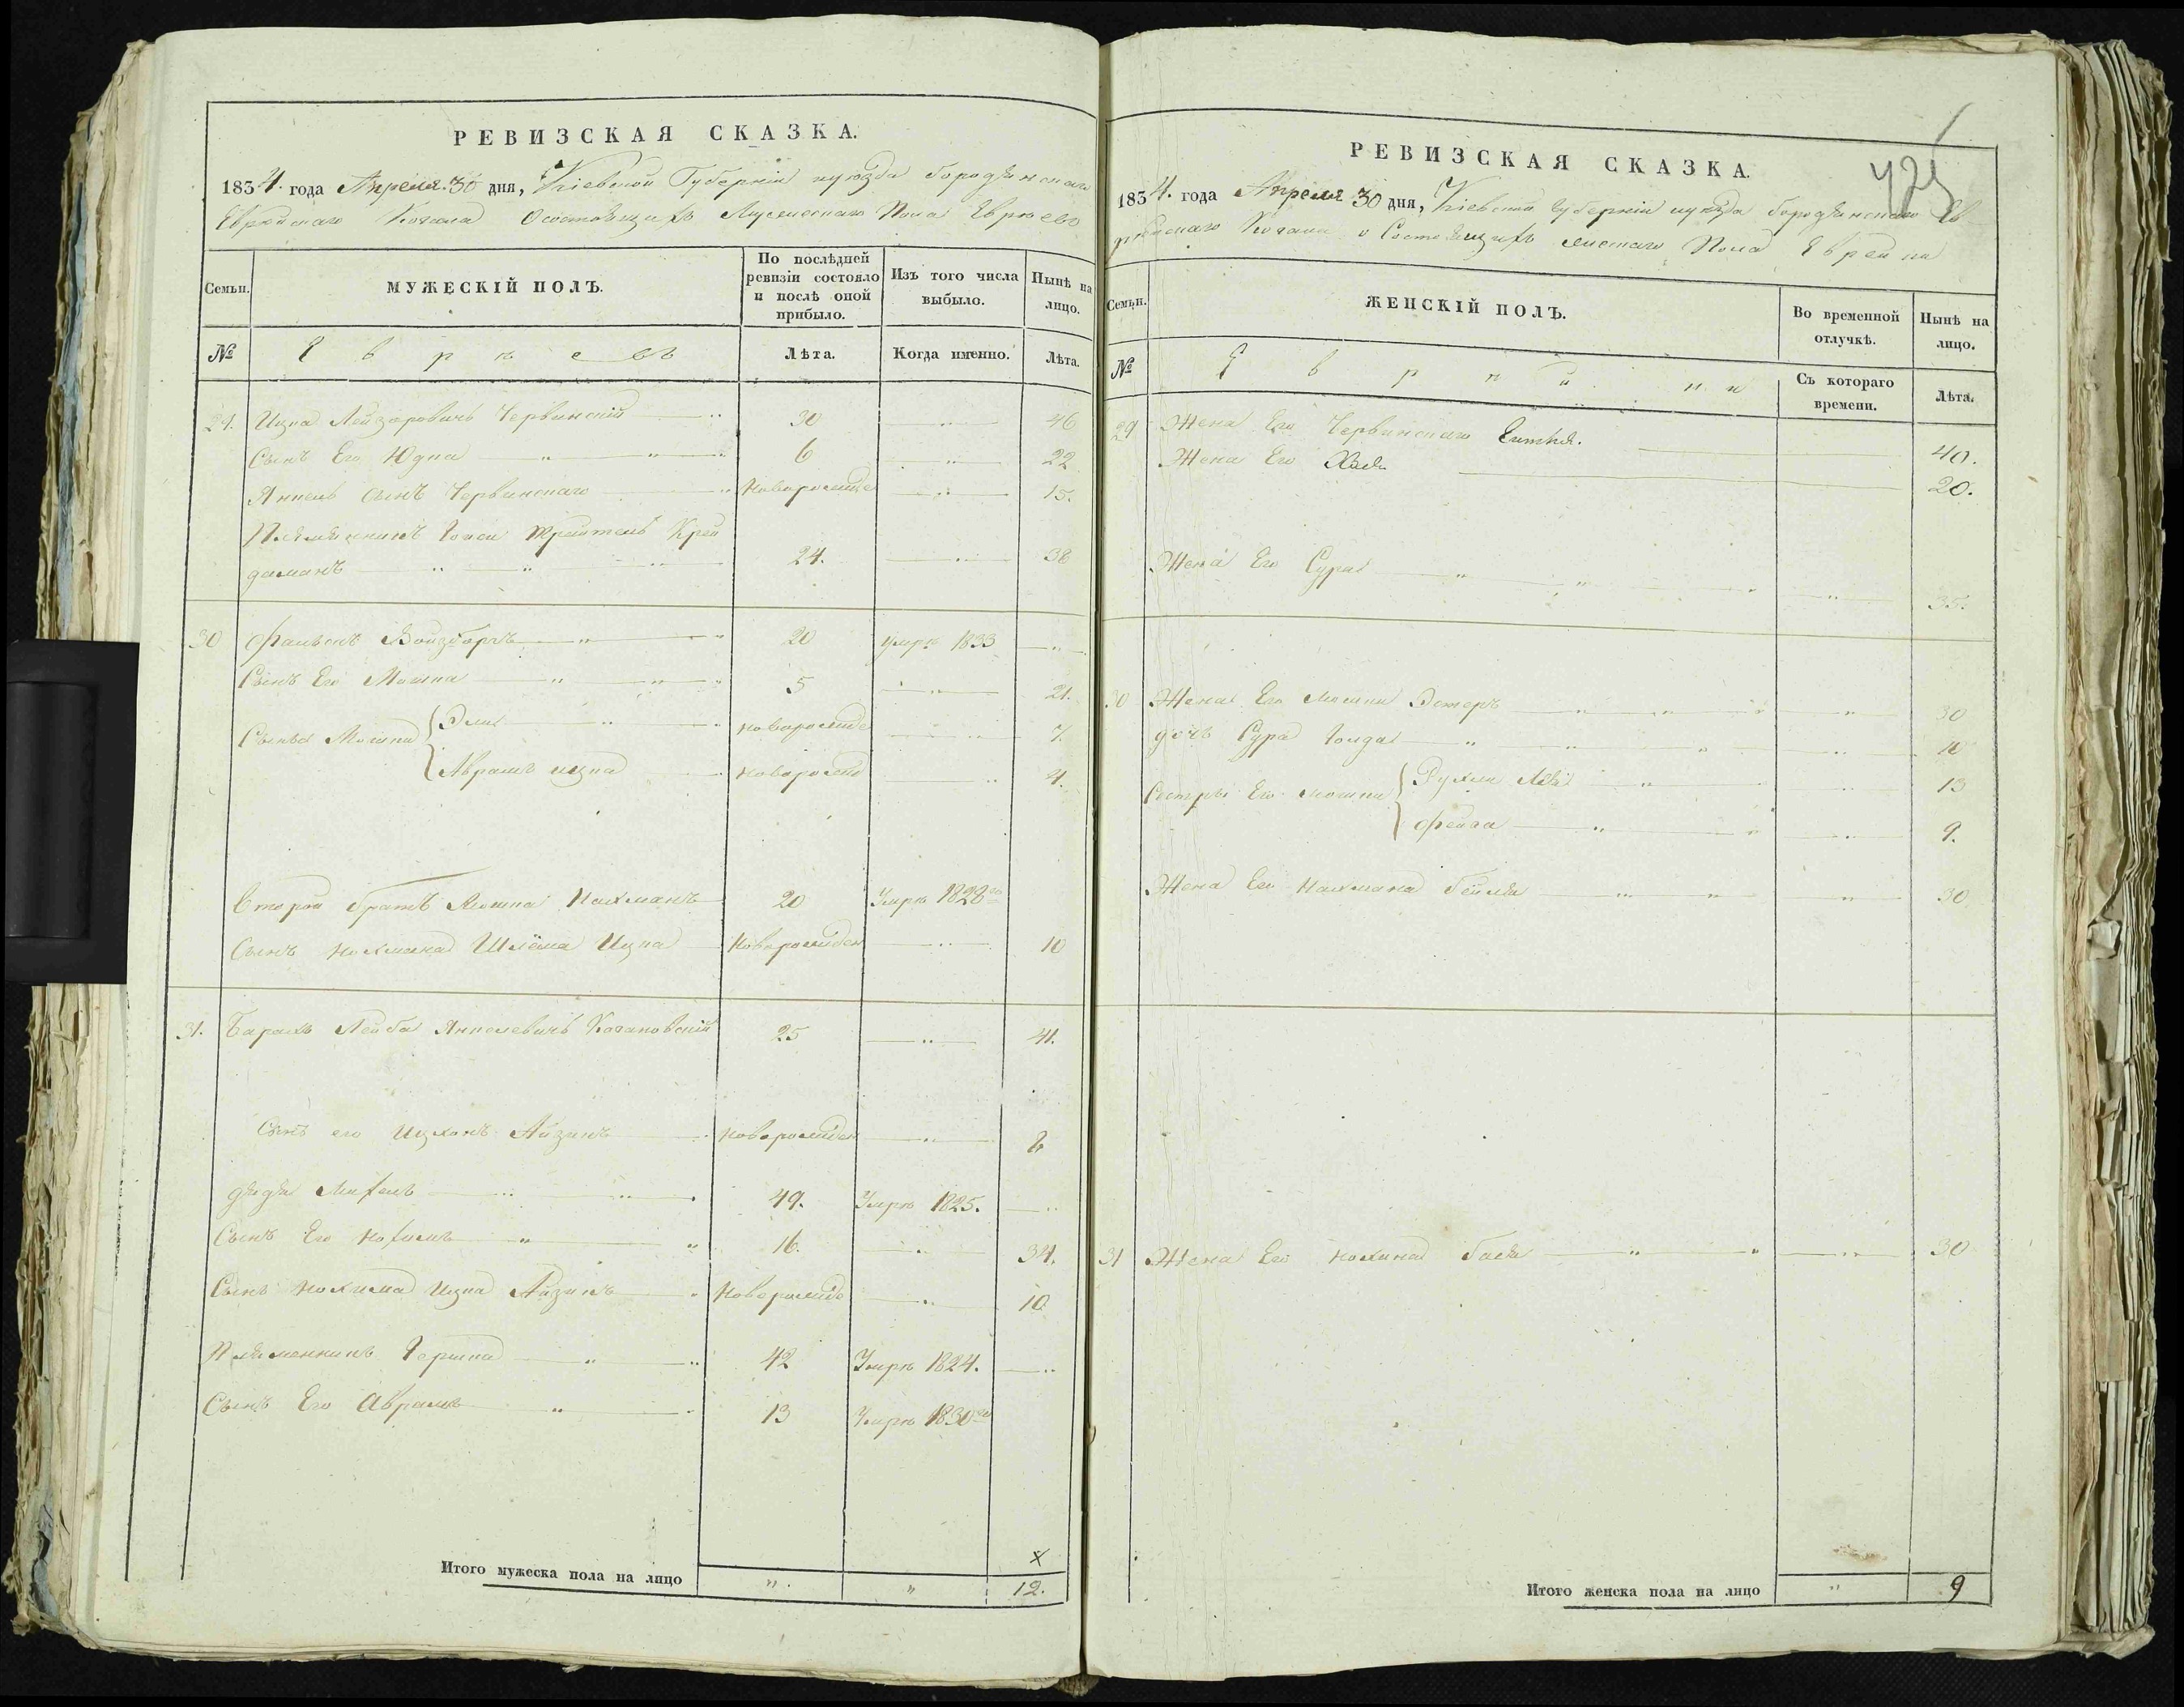 РЕВИЗСКАЯ СКАЗКА.
1834. года Апреля 30 дня, Кіевской Губерніи и уѣзда бородянскаго
Еврейскаго Кагала О состоящихъ Мужескаго Пола Евреевъ
Семьи.
МУЖЕСКІЙ ПОЛЪ.
По послѣдней ревизіи состояло и послѣ оной прибыло.
Изъ того числа выбыло.
Нынѣ на лицо.
№
Евреевъ
Лѣта.
Когда именно.
Лѣта.
29. Ицка Лейзоровичъ Червинскій 30 46
Сынъ Его Юдка 6 22
Янкель сынъ Червинскаго Новорожде 15.
Племянникъ Край
даманъ 24. 38
30 Файвель 20 умре 1833
Сынъ Его Мошка 5 21.
Сынъя Мошки Эли новорожде 7.
Абрамъ ицка новорожде 4.
Второй братъ Мошка Нахманъ 20 Умре 1828го
Сынъ Нохмана Шлёма Ицка Новорожден 10
31. Барахъ Лейба Янкелевичъ Кагановскій 25 41.
Сынъ его Ицхокъ Айзикъ Новорожден 8
дядя 49. Умре 1825.
Сынъ Его Нохимъ 16. 34.
Сынъ Нохима Ицка Айзикъ Новорожде 10
Племенникъ Гершка 42 Умре 1824.
Сынъ Его Абрамъ 13 Умре 1830го
х
Итого мужеска пола на лицо " " 12.
425
РЕВИЗСКАЯ СКАЗКА.
1834. года Апреля 30 дня, Кіевской губерніи и уѣзда бородянскаго Ев
рейскаго Кагала о Состоящихъ женскаго Пола Еврейки
Семьи.
ЖЕНСКІЙ ПОЛЪ.
Во временной отлучкѣ.
Нынѣ на лицо.
№
Еврейки
Съ котораго времени.
Лѣта.
29 Жена Его Червинскаго 40.
Жена Его Хася 20.
Жена Его Сура 35.
30 Жена Его Мошки Эстеръ 30
дочь Сура Голда 10
Сестры Его мошки Рухля 13
Фейга 9.
Жена Его Нахмана бейля 30
31 Жена Его нохима бася 30
Итого женска пола на лицо " 9